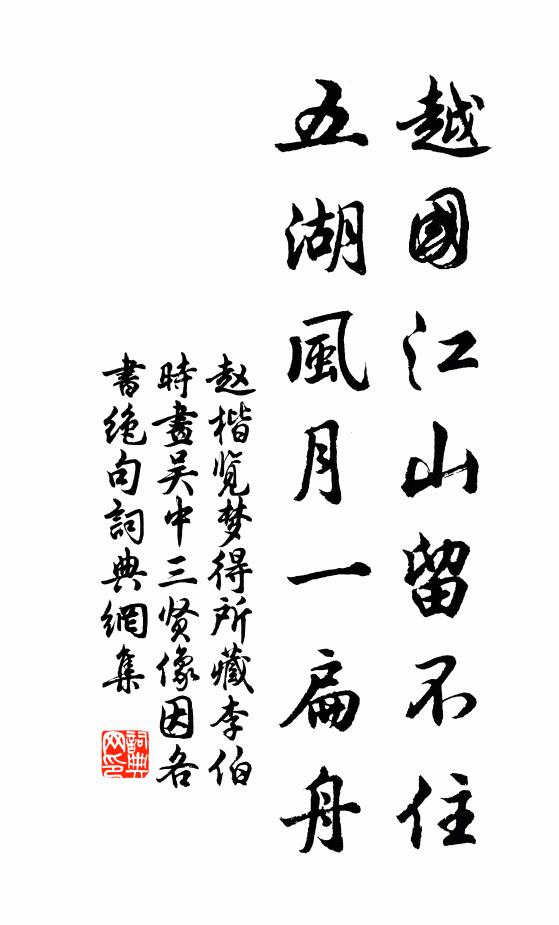 越國江山留不住
五湖風月一扁舟
赵楷览梦得所藏李伯
時畫吴中三贤像因各
書绝句詞典網集
詞典
网印